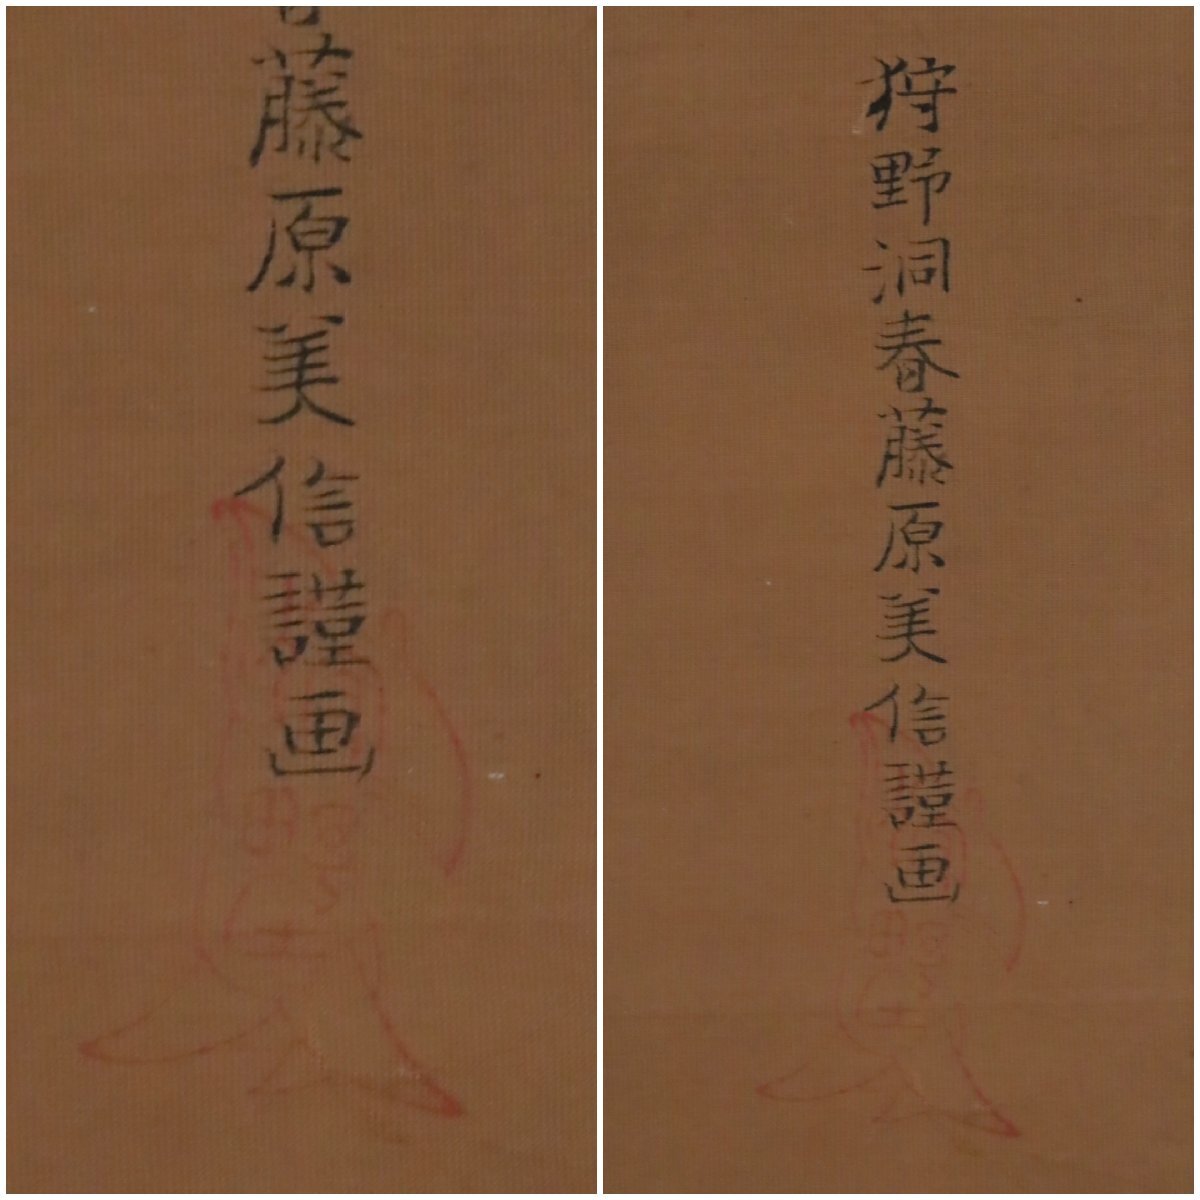 藤原美信謹画
狩野洞春藤原美信謹画